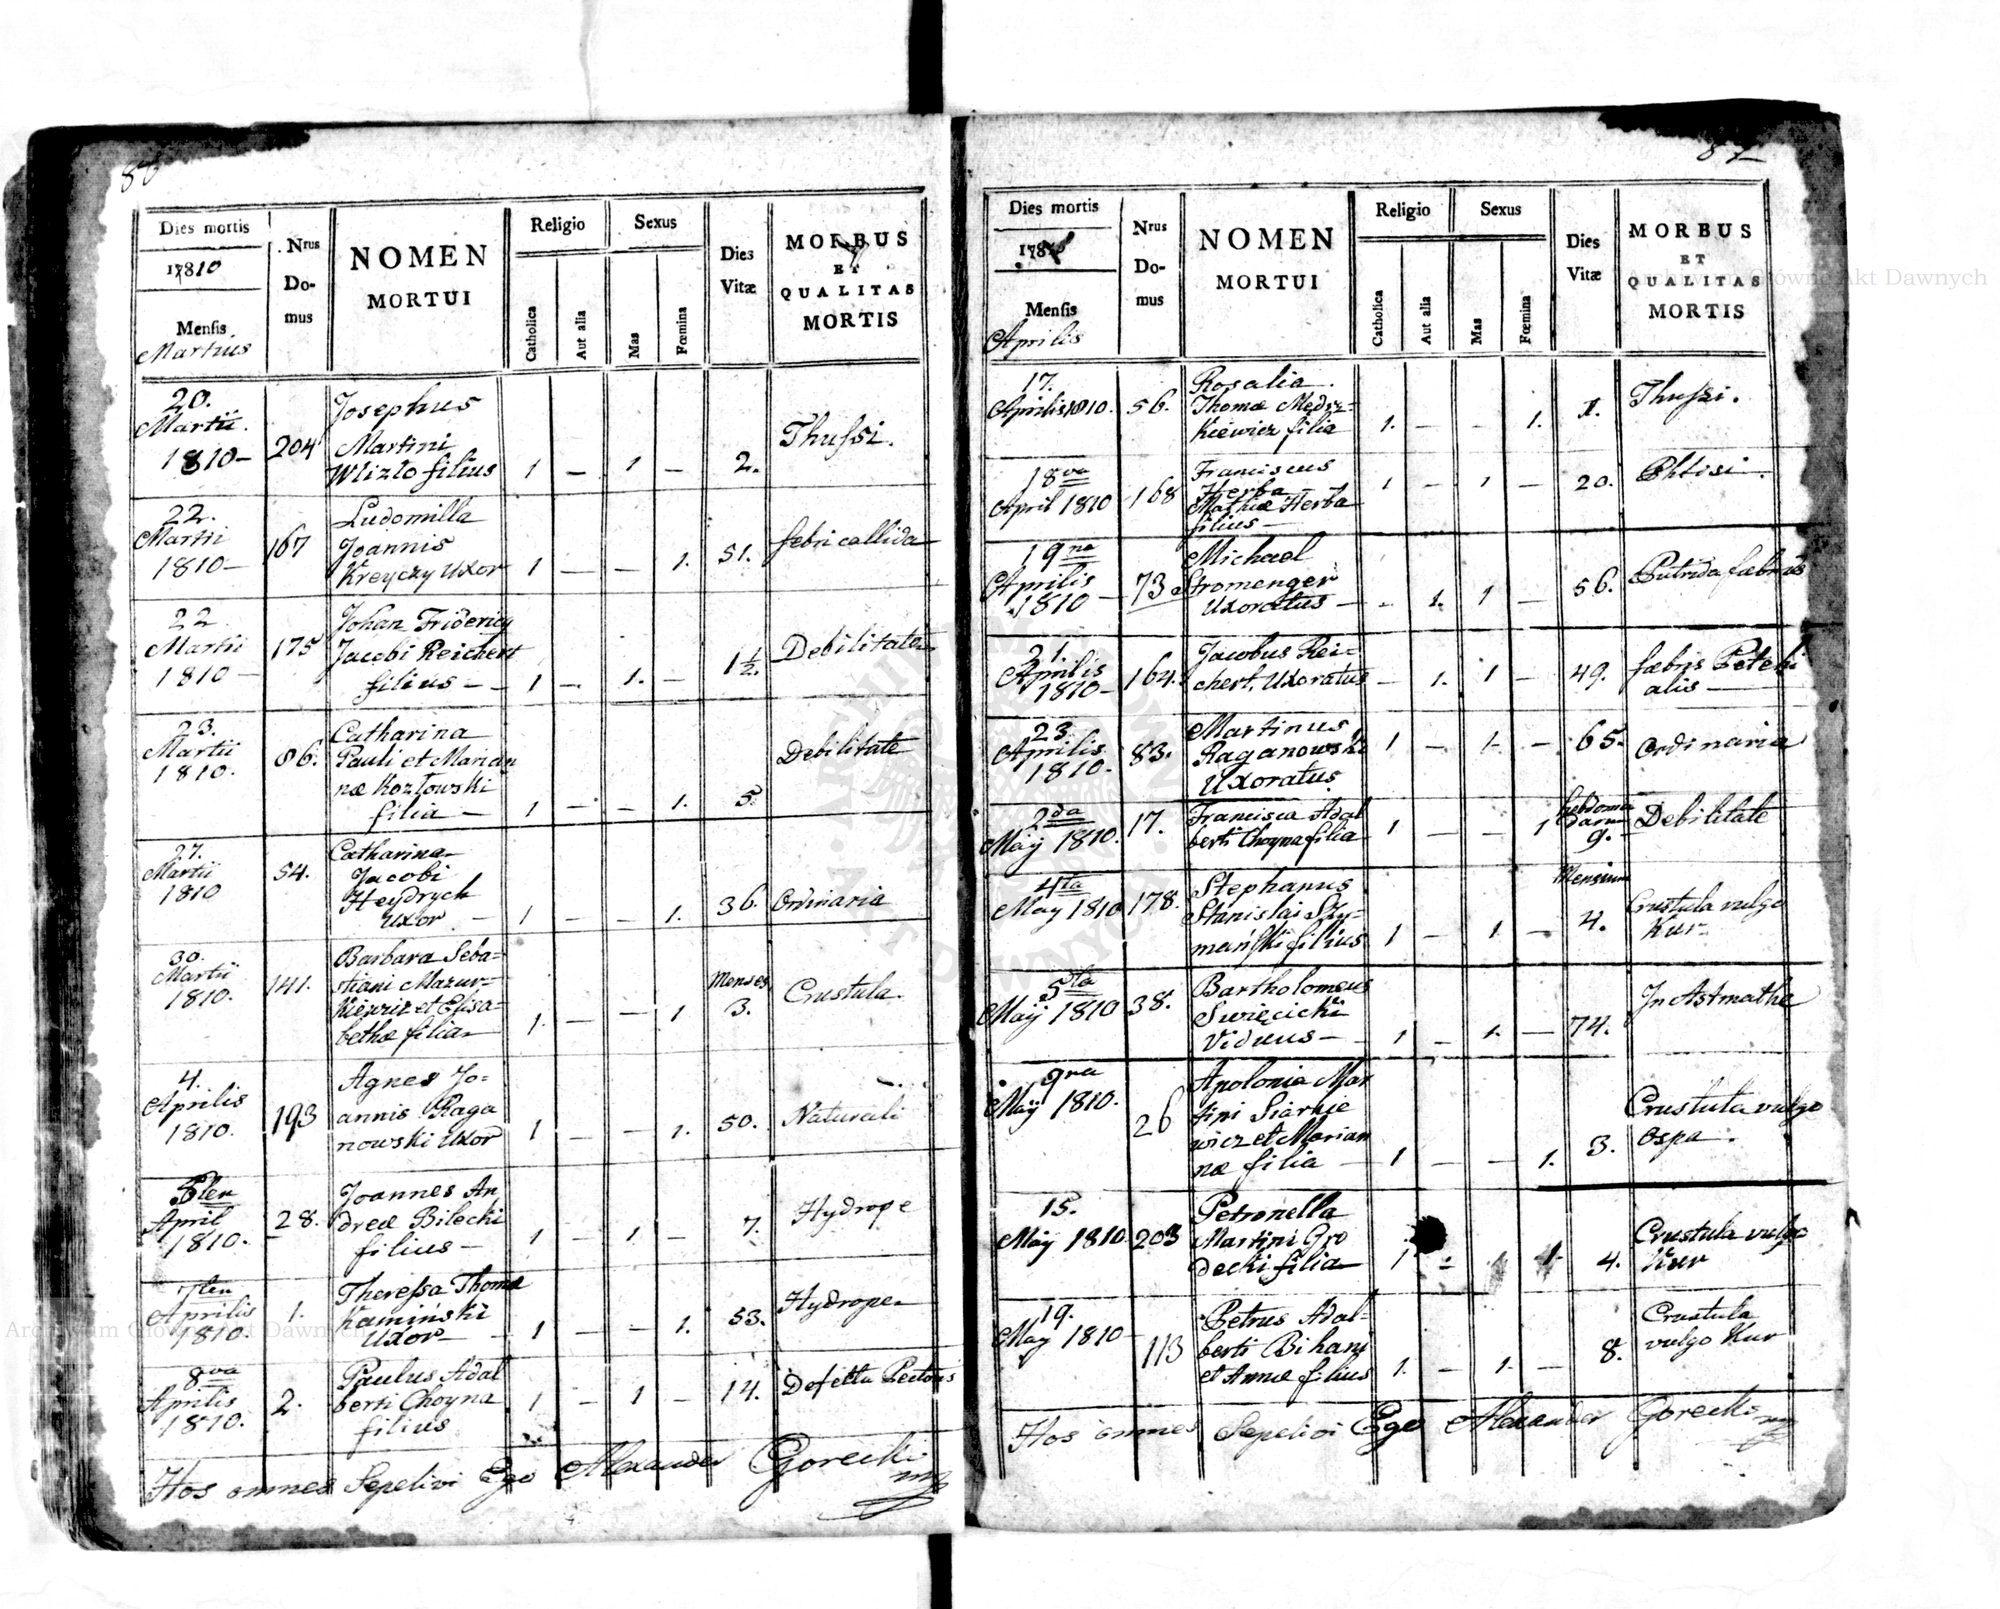 86
Dies mortis
17810
Mensis
Martius
Nrus
Do-
mus
NOMEN
MORTUI
Religio
Catholica
Aut alia
Sexus
Mas
Fœmina
Dies
Vitæ
MORBUS
ET
QUALITAS
MORTIS
20.
Martii
1810 –
204
Josephus
Martini
Wlizlo filius
1 – 1 – 2.
Thussi.
22.
Martii
1810 –
167
Ludomilla
Joannis
Kreyczy Uxor
1 – – 1. 51.
febri callida
22
Martii
1810 –
175
Johan Fridericy
Jacobi Reichert
filius –
1 – 1. – 1½.
Debilitate
23.
Martii
1810.
86.
Catharina
Pauli et Marian
næ Kozłowski
filia –
1 – – 1. 5.
Debilitate
27.
Martii
1810
54.
Catharina
Jacobi
Heydrych
Uxor –
1 – – 1. 36.
Ordinaria
30.
Martii
1810.
141.
Barbara Seba=
stiani Mazur=
kiewicz et Elisa=
bethæ filia
1. – – 1
Menses
3.
Crustula.
4.
Aprilis
1810.
193
Agnes Jo=
annis Raga
nowski Uxor
1 – – 1. 50.
Naturali
5ten
April
1810.
28.
Joannes An
dreæ Bilecki
filius –
1 – 1 – 7.
Hydrope
7ten
Aprilis
1810.
1.
Theressa Thomæ
Kamiński
Uxor –
1 – – 1. 53.
Hydrope
8va
Aprilis
1810.
2.
Paulus Adal
berti Choyna
filius
1 – 1 – 14.
Defectu Pectoris
Hos omnes Sepelivi Ego Alexander Gorecki
87
Dies mortis
Mensis
Aprilis
Nrus
Do-
mus
NOMEN
MORTUI
Religio
Catholica
Aut alia
Sexus
Mas
Fœmina
Dies
Vitæ
MORBUS
ET
QUALITAS
MORTIS
17.
Aprilis 1810.
56.
Rosalia
Thomæ Mędrz=
kiewicz filia
1. – – 1. 1.
Thussi.
18va
April 1810
168
Franciscus
Herba
Mathiæ Herba
filius –
1 – 1 – 20.
Phtisi –
19na
Aprilis
1810 –
73
Michael
Stromenger
Uxoratus –
– 1. 1 – 56.
Putrida fæbris
21.
Aprilis
1810 –
164.
Jacobus Rei=
chert, Uxoratus
– 1. 1 – 49.
fæbris Petechi
alis –
23.
Aprilis
1810.
83.
Martinus
Raganowski
Uxoratus.
1 – 1. – 65.
Ordinaria
2da
Maÿ 1810.
17.
Francisca Adal
berti Choyna filia
1 – – 1
hebdoma
darum
9.
Debilitate
4ta
May 1810
178.
Stephanus
Stanislai Szy=
mański filius
1 – 1. –
Mensium
4.
Crustula vulgo
Kur
5ta
Maÿ 1810
38.
Bartholomeus
Swięcicki
Viduus –
1 – 1. – 74.
In Astmathe
9na
Maÿ 1810.
26
Apolonia Mar
tini Siarkie
wicz et Marian
næ filia –
1 – – 1. 3.
Crustula vulgo
Ospa.
15.
Maÿ 1810.
203
Petronella
Martini Gro
decki filia
1 – 1. 4.
Crustula vulgo
Kur
19.
May 1810 –
113
Petrus Adal=
berti Bihani
et Annæ filius
1. – 1. – 8.
Crustula
vulgo Kur
Hos omnes Sepelivi Ego Alexander Gorecki
Archiwum Główne Akt Dawnych
Archiwum Główne Akt Dawnych